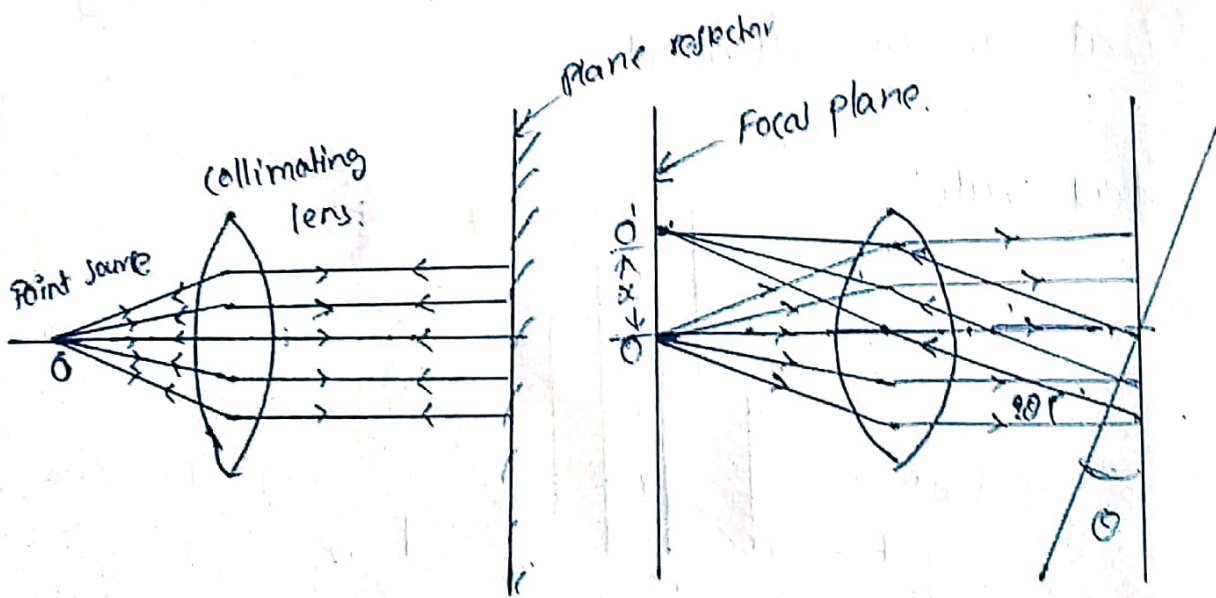 Plane reflector
Focal plane.
Collimating
lens:
Point source
O
O'
x
O
2θ
θ